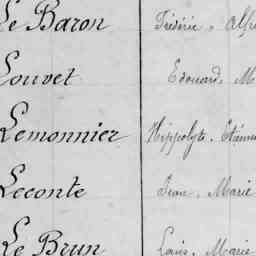 Le Baron Frédéric, Alfr
Louvet Edouard, M
Lemonnier Hippolyte, Etienne
Leconte Jean, Marie
Le Brun Louis, Marie